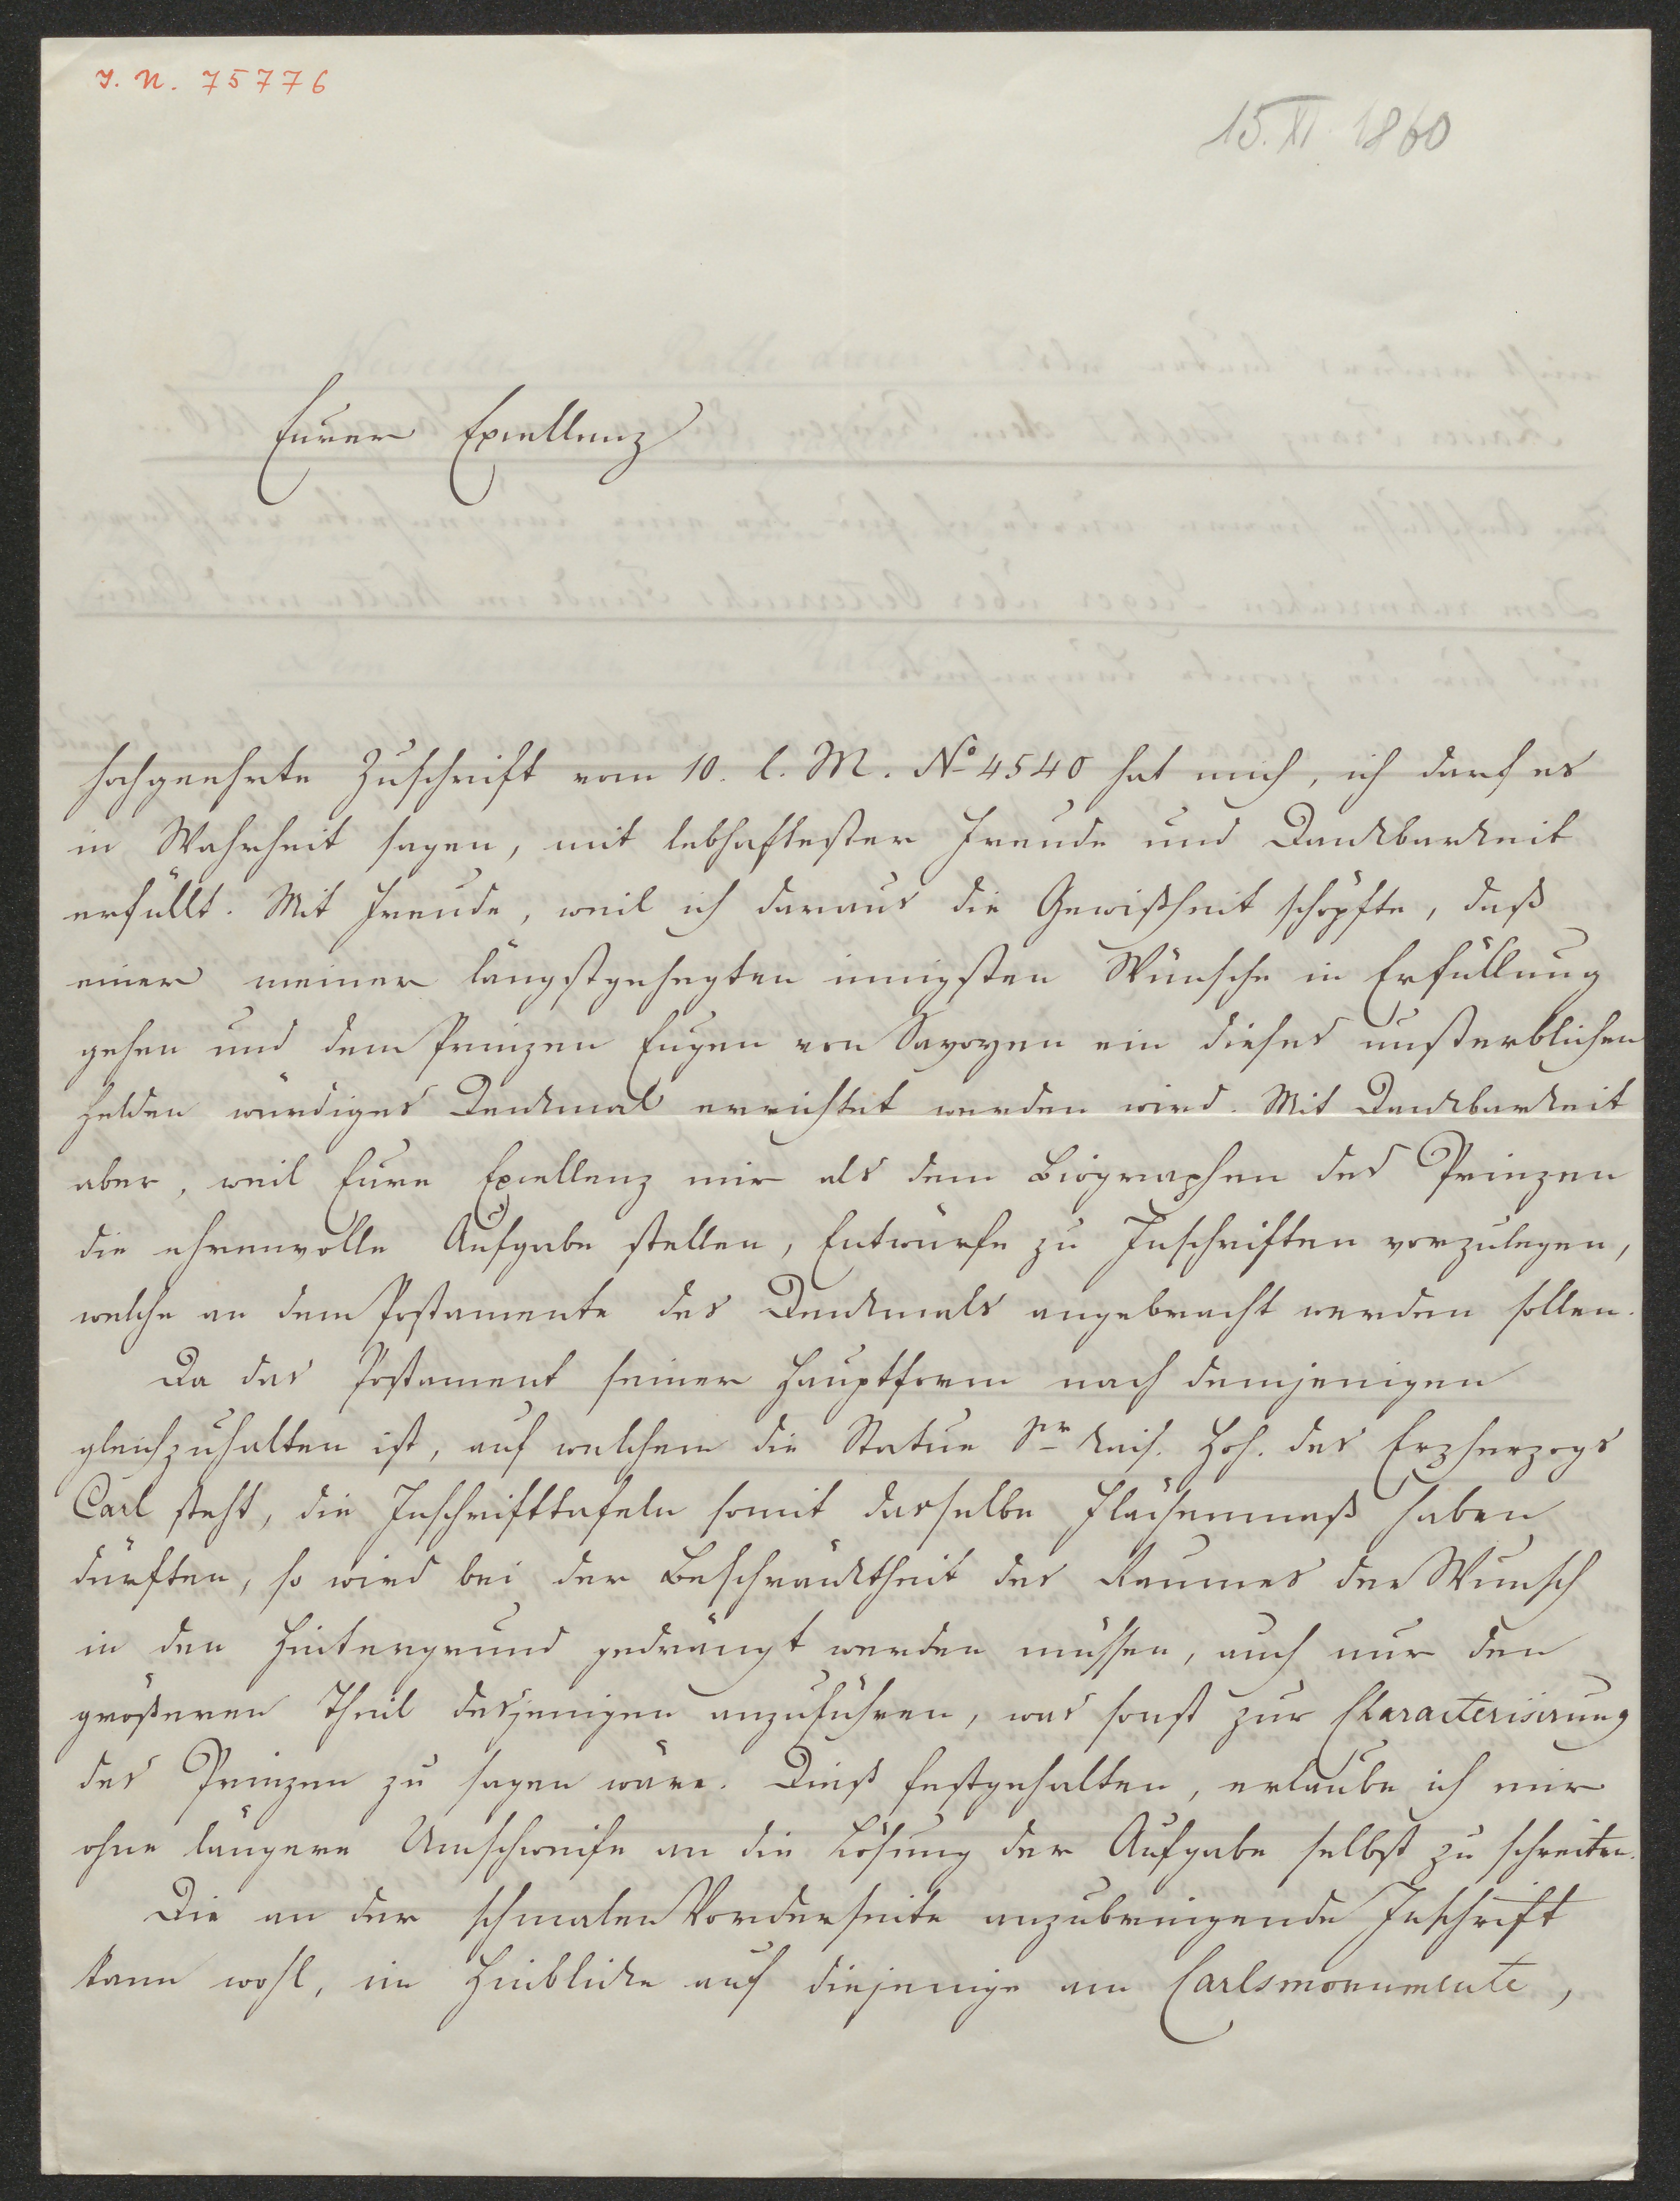 I. N. 75776
15. XI. 1860
Eurer Excellenz
hochgeehrte Zuschrift vom 10. l. M. No 4540 hat mich, ich darf es
in Wahrheit sagen, mit lebhaftester Freude und Dankbarkeit
erfüllt. Mit Freude, weil ich daraus die Gewißheit schöpfte, daß
einer meiner längstgehegten innigsten Wünsche in Erfüllung
gehen und dem Prinzen Eugen von Savoyen ein dieses unsterblichen
Helden würdiges Denkmal errichtet werden wird. Mit Dankbarkeit
aber, weil Eure Excellenz mir als dem Biographen des Prinzen
die ehrenvolle Aufgabe stellen, Entwürfe zu Inschriften vorzulegen,
welche an dem Postamente des Denkmals angebracht werden sollen.
Da das Postament seiner Hauptform nach demjenigen
gleichzuhalten ist, auf welchem die Statue Sr kais. Hoh. des Erzherzogs
Carl steht, die Inschrifttafeln somit dasselbe Flächenmaß haben
dürften, so wird bei der Beschränktheit des Raumes der Wunsch
in den Hintergrund gedrängt werden müssen, auch nur den
größeren Theil desjenigen anzuführen, was sonst zur Characterisirung
des Prinzen zu sagen wäre. Dieß festgehalten, erlaube ich mir
ohne längere Umschweife an die Lösung der Aufgabe selbst zu schreiten.
Die an der schmalen Vorderseite anzubringende Inschrift
kann wohl, im Hinblicke auf diejenige am Carlsmonumente,